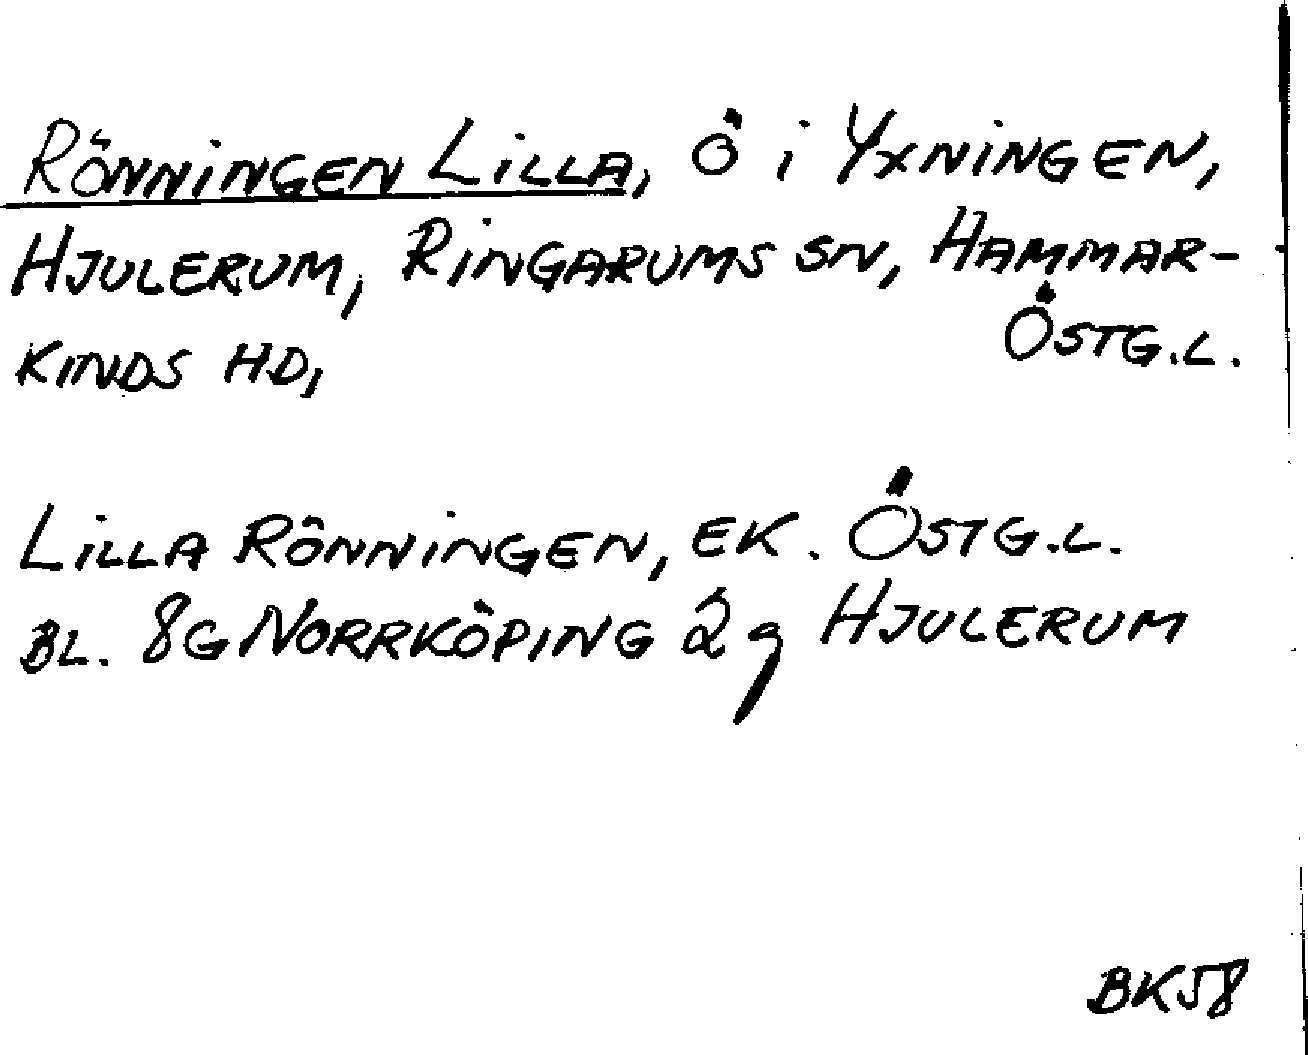 RÖNNINGEN LILLA, Ö i YXNINGEN,
HJULERUM, RINGARUMS SN, HAMMAR-
KINDS HD, ÖSTG.L.
LILLA RÖNNINGEN, EK. ÖSTG.L.
BL. 8G NORRKÖPING 2g HJULERUM
BK58